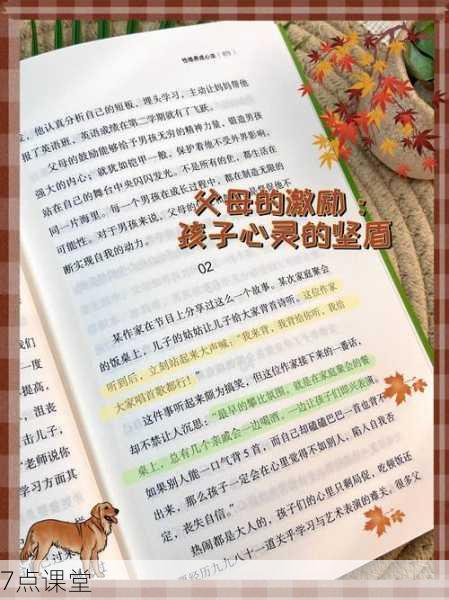 性格养成心法
他认真分析自己的短板，埋头学习，主动让妈妈帮他
报了英语班，英语成绩在第二学期就有了飞跃。
父母的鼓励能够给予男孩无穷的精神力量、锻造男孩
强大的内心；就犹如铠甲一般，保护着他不受外界影响，
站在自己的舞台中央闪闪发光。不是所有的鱼，都生活在
同一片海里。每一个男孩在成长过程中，都在制造无限的
可能性。对于男孩来说，父母的
断实现自我的动力。
父母的激励：
孩子心灵的坚盾
02
某作家在节目上分享过这么一个故事。某次家庭聚会
的饭桌上，儿子的姑姑让儿子给大家背首诗听。这位作家
听到后，立刻站起来大声喊：“我来背，我背给你听，我给
大家唱首歌都行！”
这件事听起来颇为搞笑，但这位作家接下来的一番话，
却不禁让人沉思：“最早的攀比氛围，就是在家庭聚会的餐
桌上，总有几个亲戚会一边喝酒，一边让孩子们即兴表演。
如果别人能一口气背5首，而自己却磕磕巴巴一首也背不
出来，那么孩子一定会在心里觉得不如别人，陷入自我否
定，丧失自信。”
热闹都是大人的，孩子们的心里只剩局促，吃顿饭还
要经历九九八十一道关乎学习与艺术表演的难关。很多父
我们
一度
提高，
，沮丧
击儿子，
“老师说你
学习方面其
已过来
7点课堂